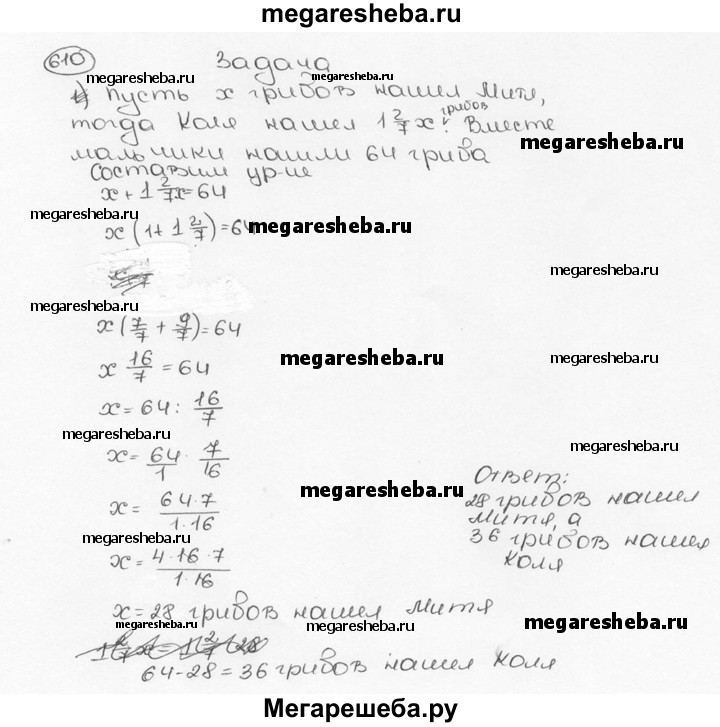 megaresheba.ru
610 Задача
megaresheba.ru megaresheba.ru
1) Пусть x грибов нашел Митя,
тогда Коля нашел 1 2/7 x грибов. Вместе
megaresheba.ru
мальчики нашли 64 гриба
Составим ур-ие
x + 1 2/7 x = 64
megaresheba.ru
x (1 + 1 2/7) = 64
megaresheba.ru
megaresheba.ru
megaresheba.ru
x (7/7 + 9/7) = 64
x 16/7 = 64
megaresheba.ru
x = 64 : 16/7
megaresheba.ru
megaresheba.ru
x = 64/1 · 7/16
Ответ:
megaresheba.ru
28 грибов нашел
x = 64·7/1·16
Митя, а
megaresheba.ru
36 грибов нашел
Коля
x = 4·16·7/1·16
x = 28 грибов нашел Митя
megaresheba.ru megaresheba.ru megaresheba.ru
64-28=36 грибов нашел Коля
Мегарешеба.ру